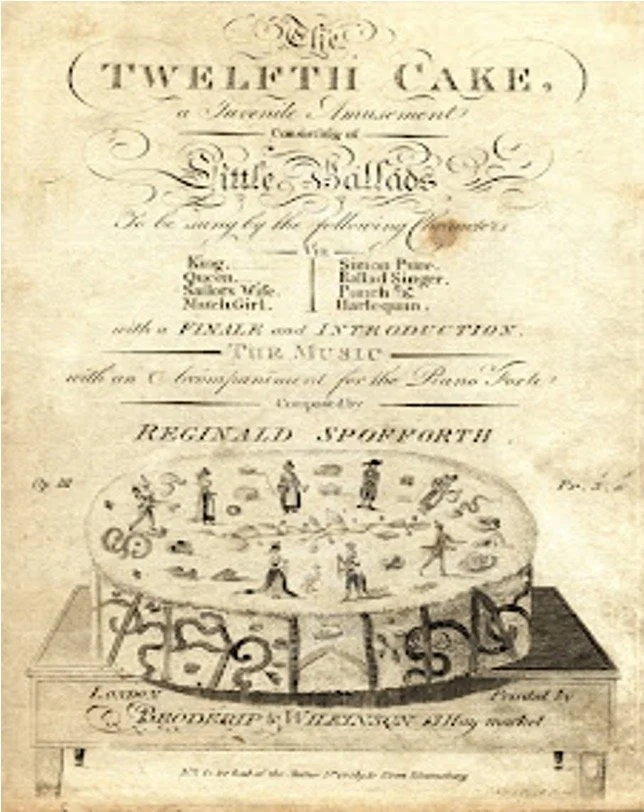 The
TWELFTH CAKE,
a Juvenile Amusement
Consisting of
Little Ballads
To be sung by the following Characters
Viz
King. Simon Pure.
Queen. Ballad Singer.
Sailors Wife. Punch &c.
Match Girl. Harlequin.
with a FINALE and INTRODUCTION.
THE MUSIC
with an Accompaniment for the Piano Forte
Composed by
REGINALD SPOFFORTH.
Op. III Pr.
LONDON Printed by
BRODERIP & WILKINSON 13 Hay market
to be had of the